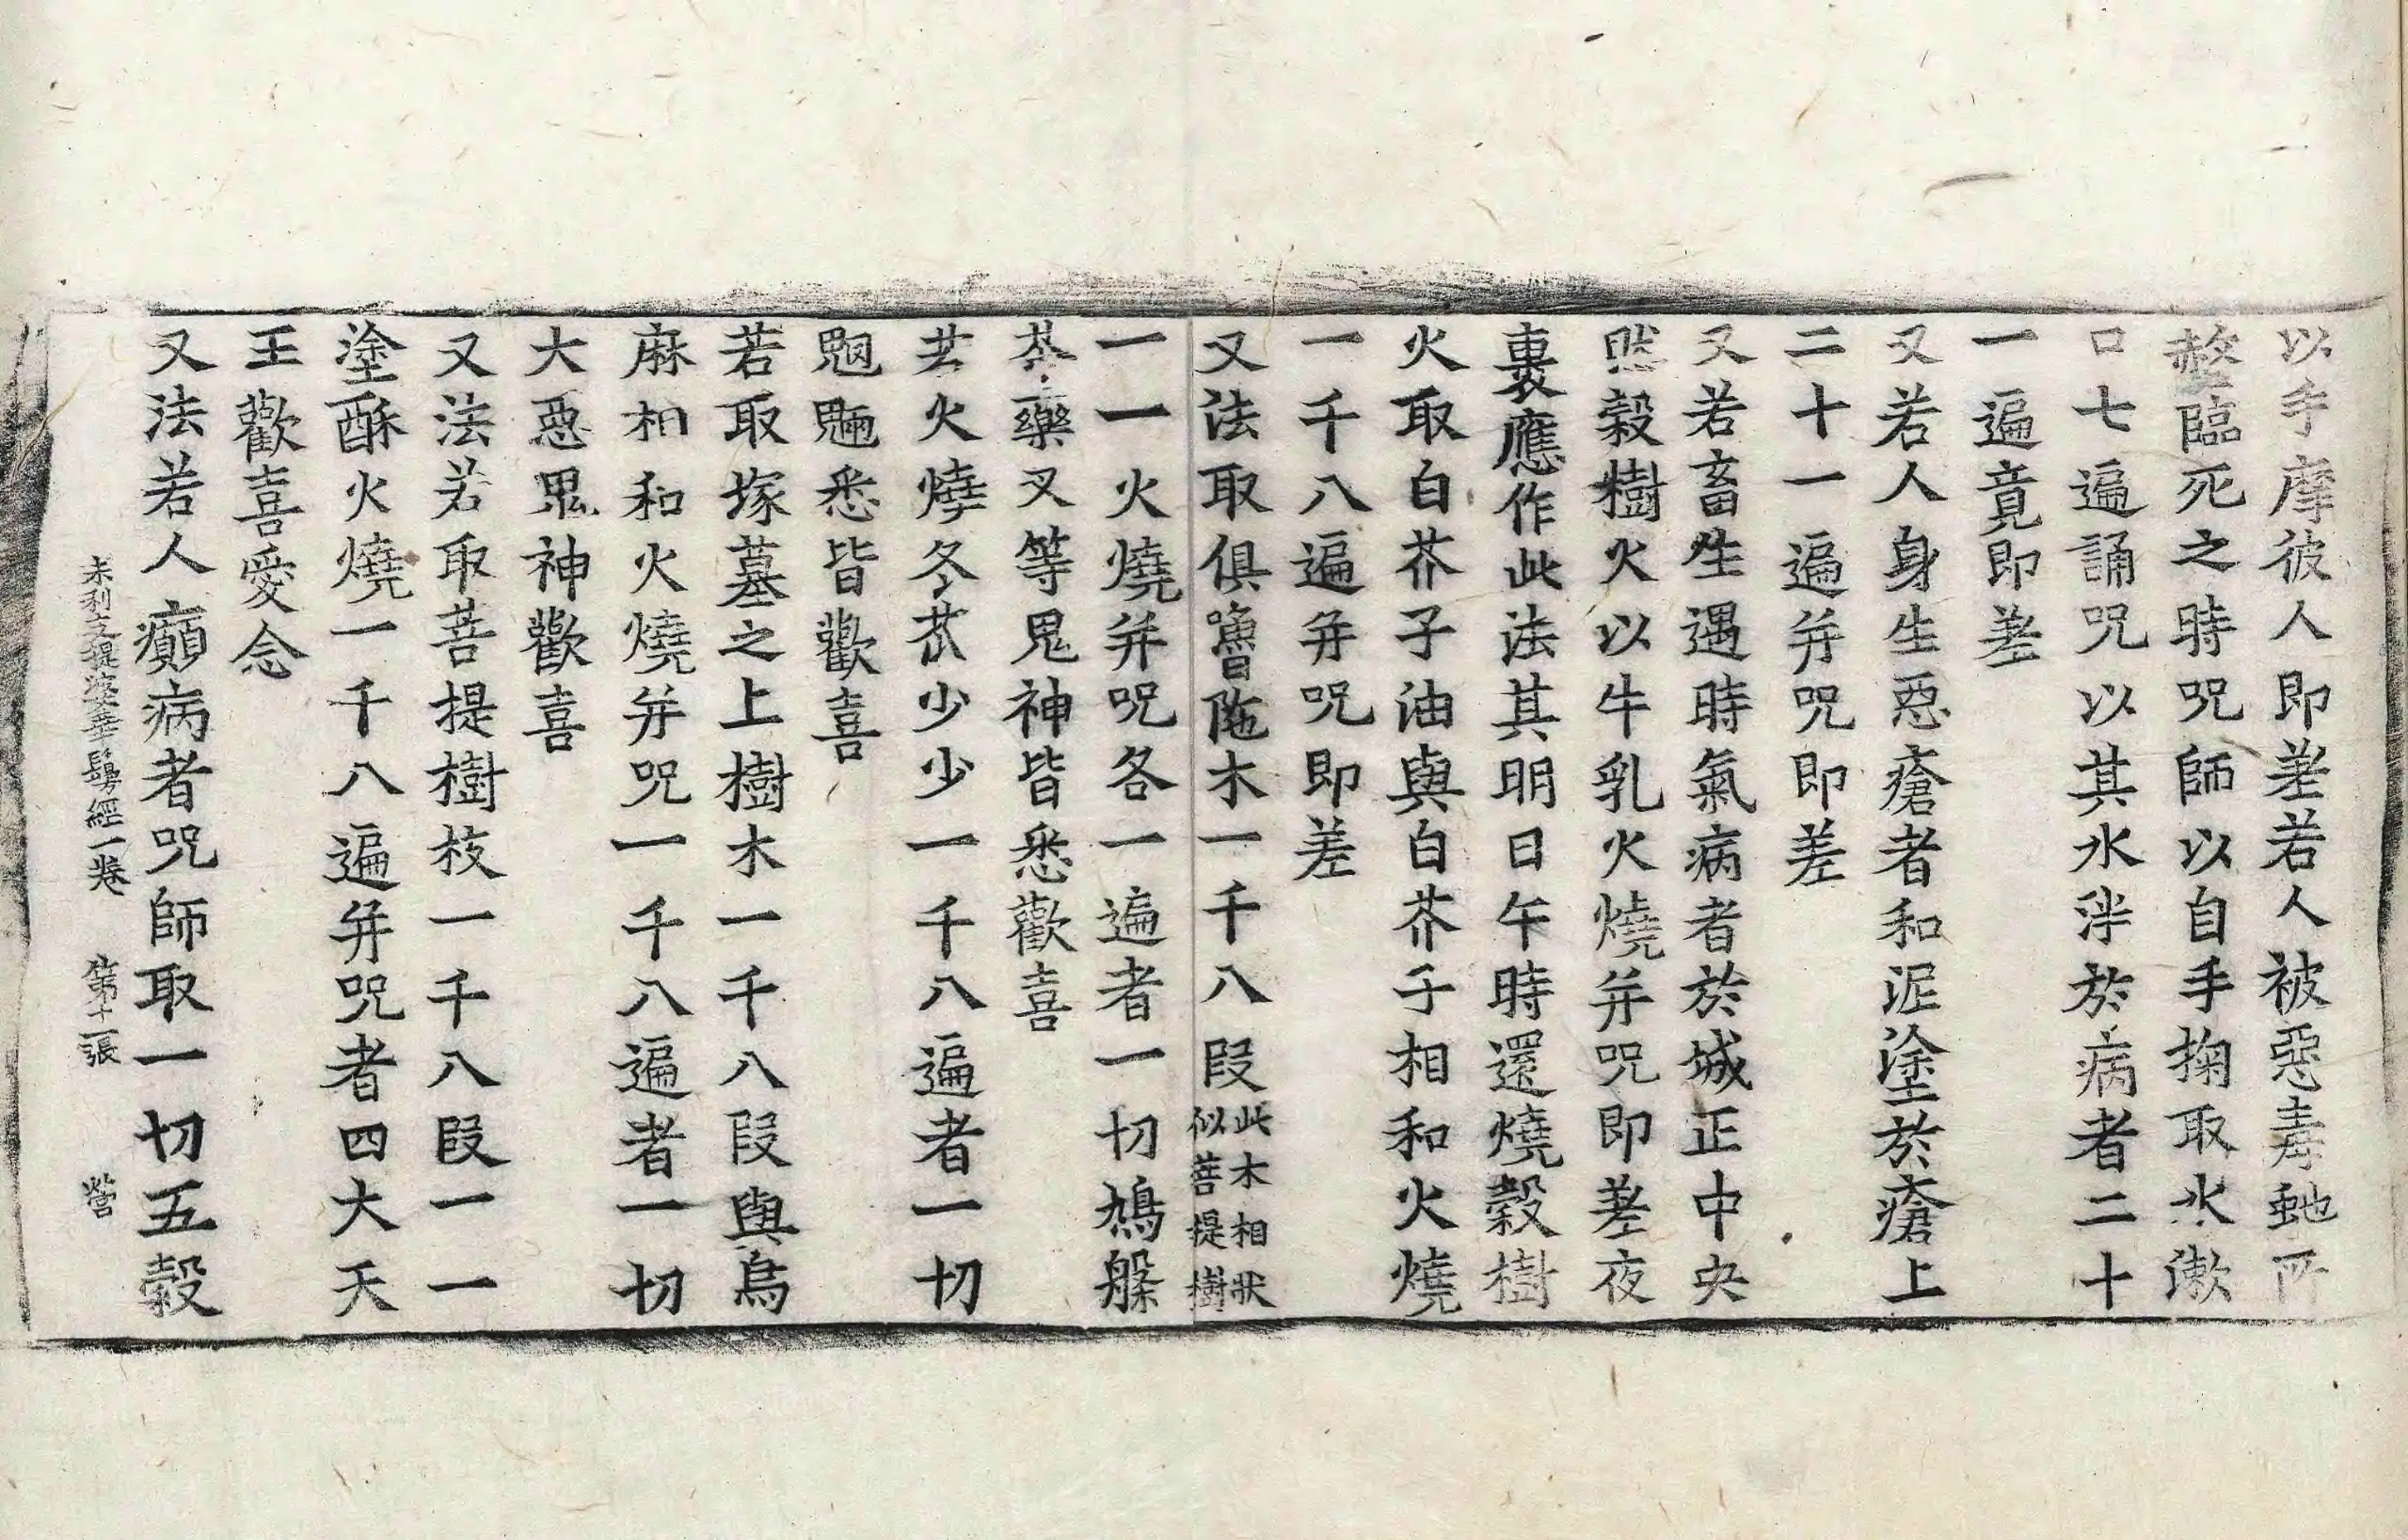 以手摩彼人即差若人被惡毒虵所
螫臨死之時呪師以自手掬取水漱
口七遍誦呪以其水泮於病者二十
一遍竟即差
又若人身生惡瘡者和泥塗於瘡上
二十一遍并呪即差
又若畜生遇時氣病者於城正中央
然穀樹火以牛乳火燒并呪即差夜
裏應作此法其明日午時還燒穀樹
火取白芥子油與白芥子相和火燒
一千八遍并呪即差
又法取俱嚕陁木一千八段此木相狀似菩提樹
一一火燒并呪各一遍者一切鳩槃
茶藥叉等鬼神皆悉歡喜
若火燒冬苽少少一千八遍者一切
魍魎悉皆歡喜
若取塚墓之上樹木一千八段與烏
麻相和火燒并呪一千八遍者一切
大惡鬼神歡喜
又法若取菩提樹枝一千八段一一
塗酥火燒一千八遍并呪者四大天
王歡喜愛念
又法若人癲病者呪師取一切五穀
末利支提婆華鬘經一卷　第十一張　營